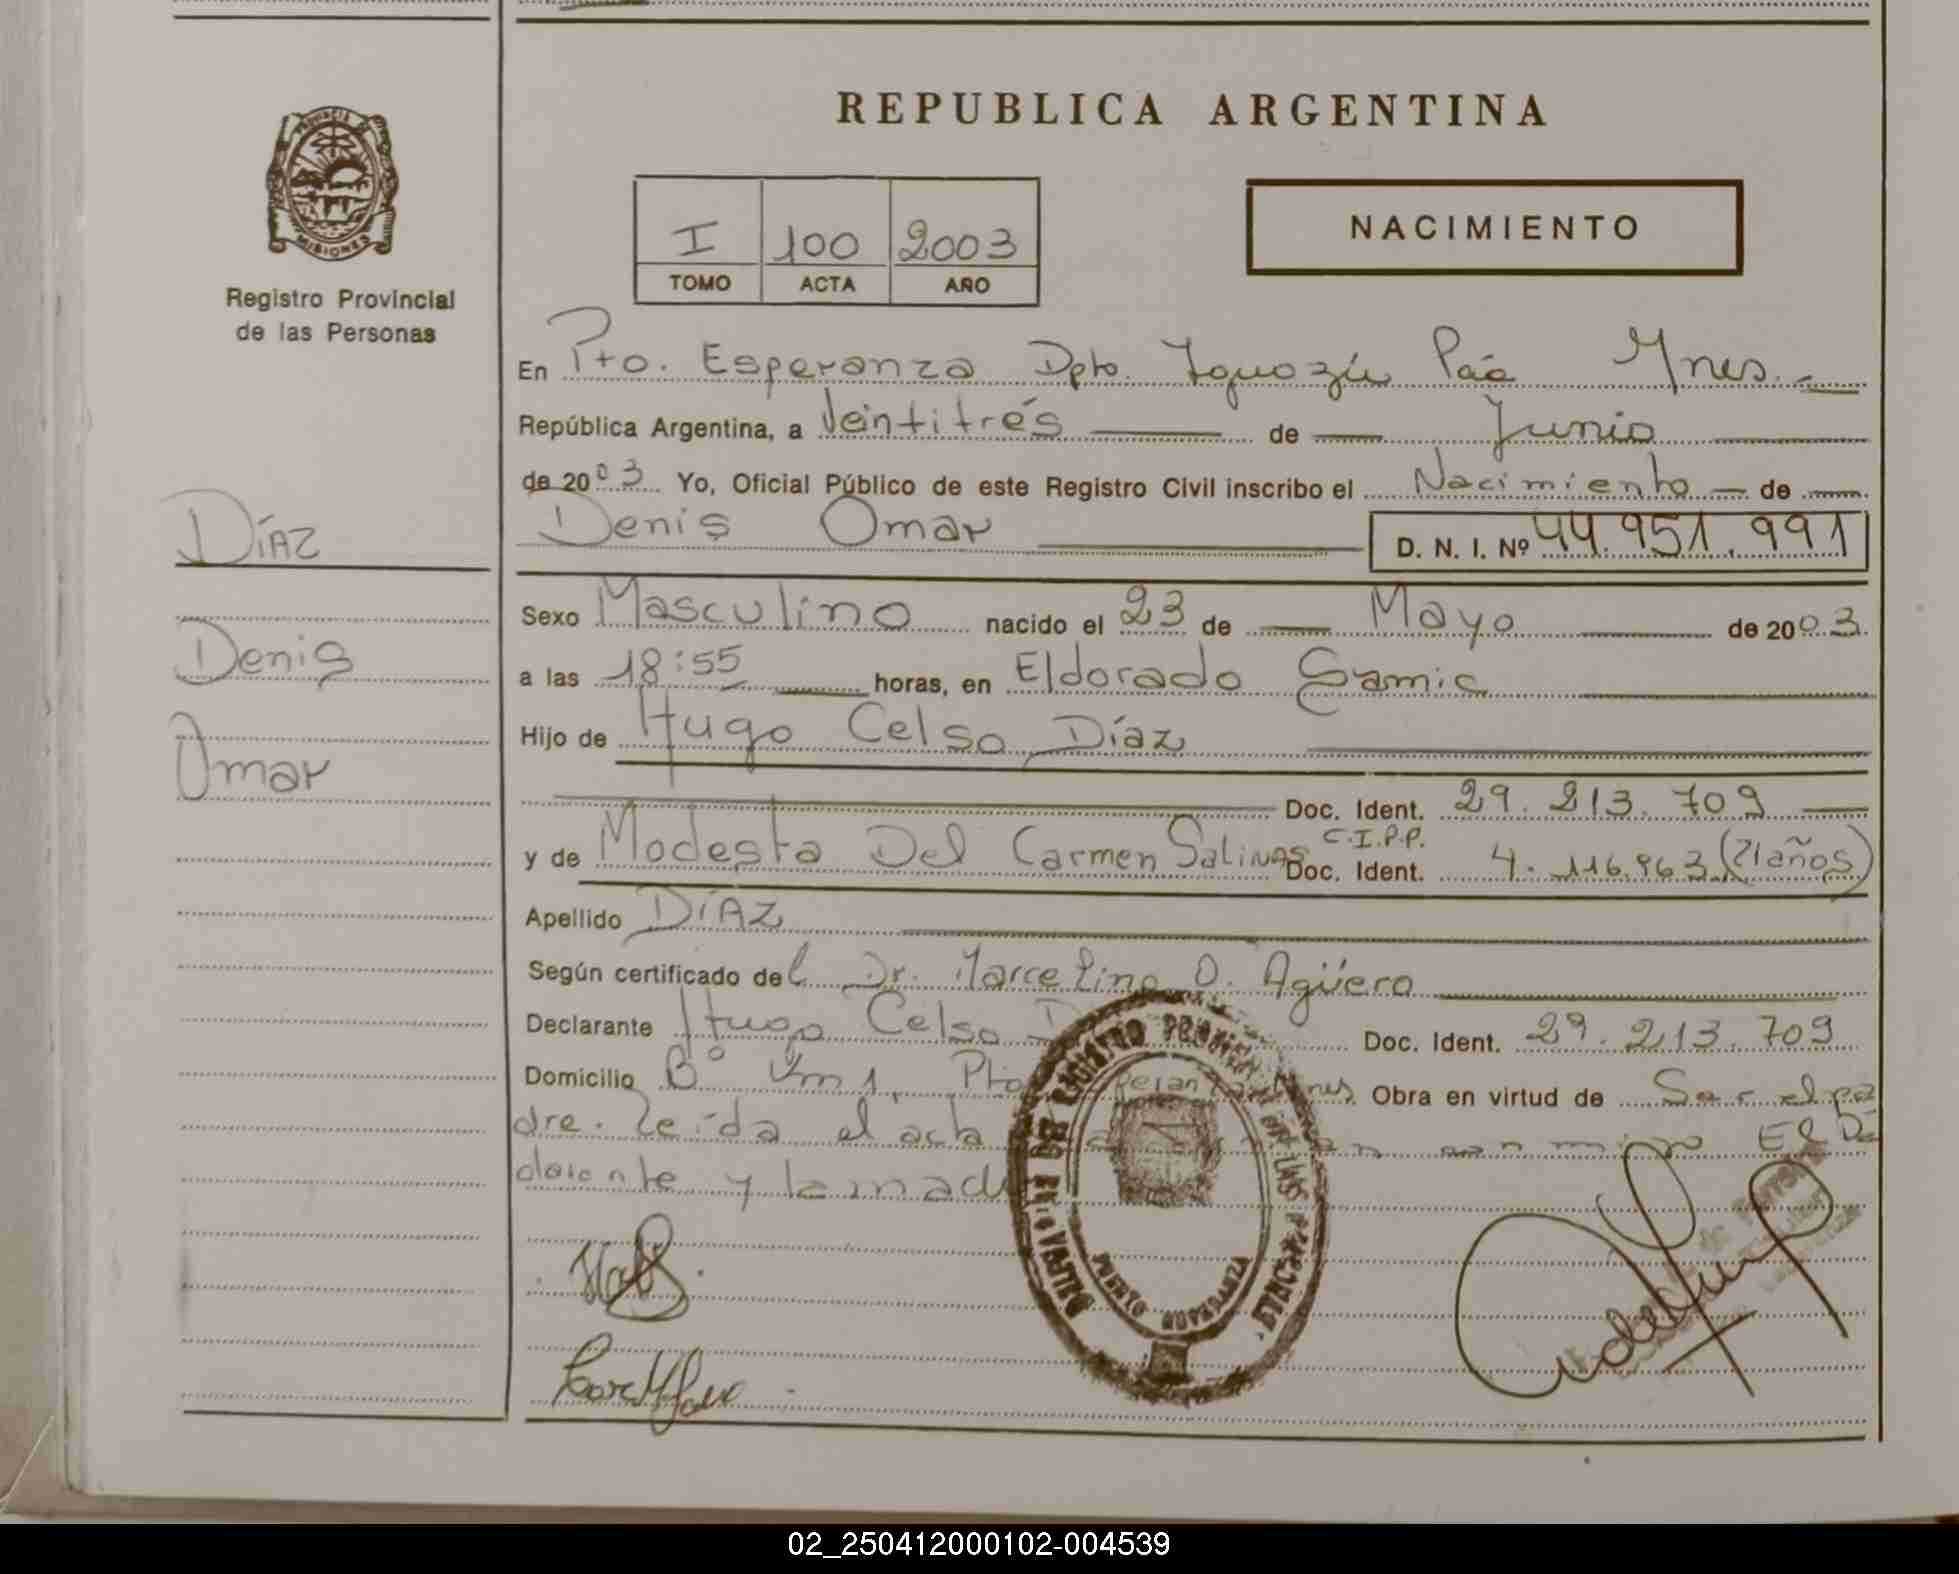 REPUBLICA ARGENTINA
PROVINCIA DE
MISIONES
Registro Provincial
de las Personas
I 100 2003
TOMO ACTA AÑO
NACIMIENTO
En Pto. Esperanza Dpto. Iguazú Pcia Mnes.
República Argentina, a Veintitrés de Junio
de 2003 Yo, Oficial Público de este Registro Civil inscribo el Nacimiento de
Denis Omar D. N. I. Nº 44.951.991
DÍAZ
Denis
Omar
Sexo Masculino nacido el 23 de Mayo de 2003
a las 18:55 horas, en Eldorado Samic
Hijo de Hugo Celso Díaz
Doc. Ident. 29.213.709
C.I.P.P.
y de Modesta Del Carmen Salinas Doc. Ident. 4.116.963 (21 años)
Apellido DÍAZ
Según certificado del Dr. Marcelino O. Agüero
Declarante Hugo Celso Doc. Ident. 29.213.709
Domicilio Bº Km 1, Pto Mnes Obra en virtud de Ser el pa
dre. Leída el acta conmigo El De
clarante y la madre
02_250412000102-004539